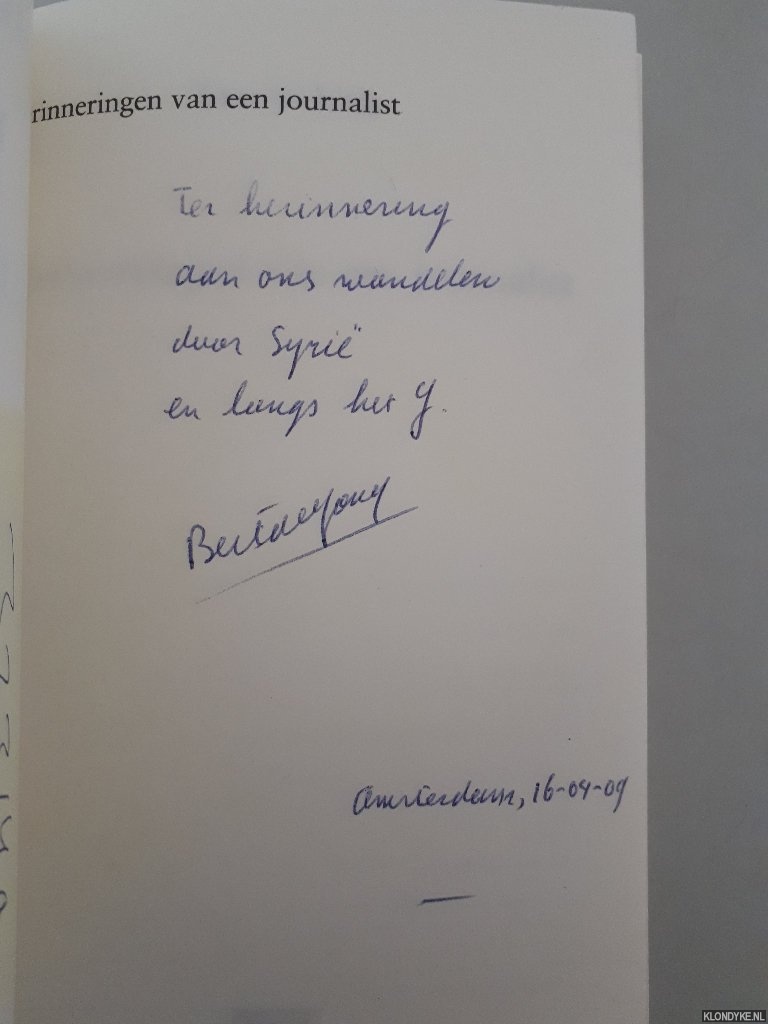 rinneringen van een journalist
Ter herinnering
aan ons wandelen
door Syrië
en langs het Y.
Bert de Jong
Amsterdam, 16-04-09
KLONDYKE.NL